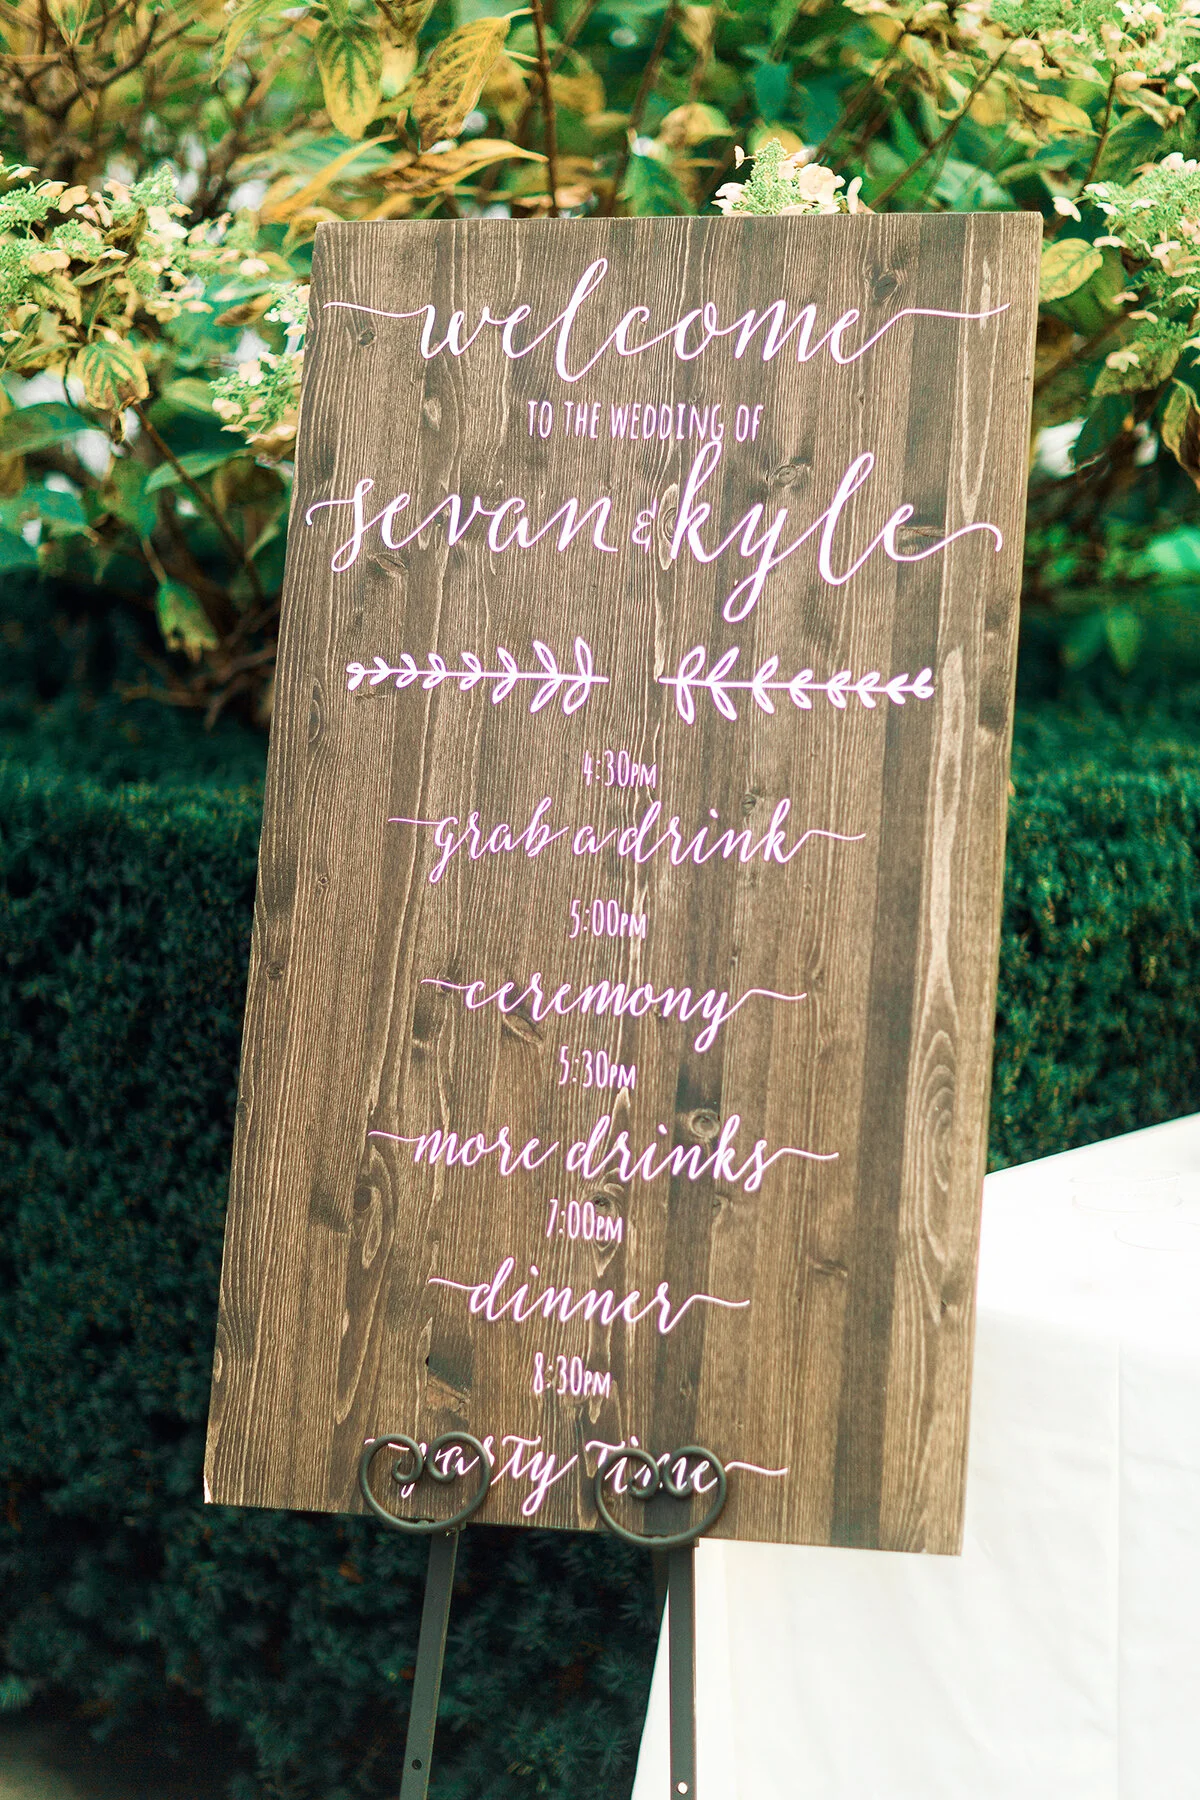 welcome
TO THE WEDDING OF
sevan & kyle
4:30PM
grab a drink
5:00PM
ceremony
5:30PM
more drinks
7:00PM
dinner
8:30PM
party time